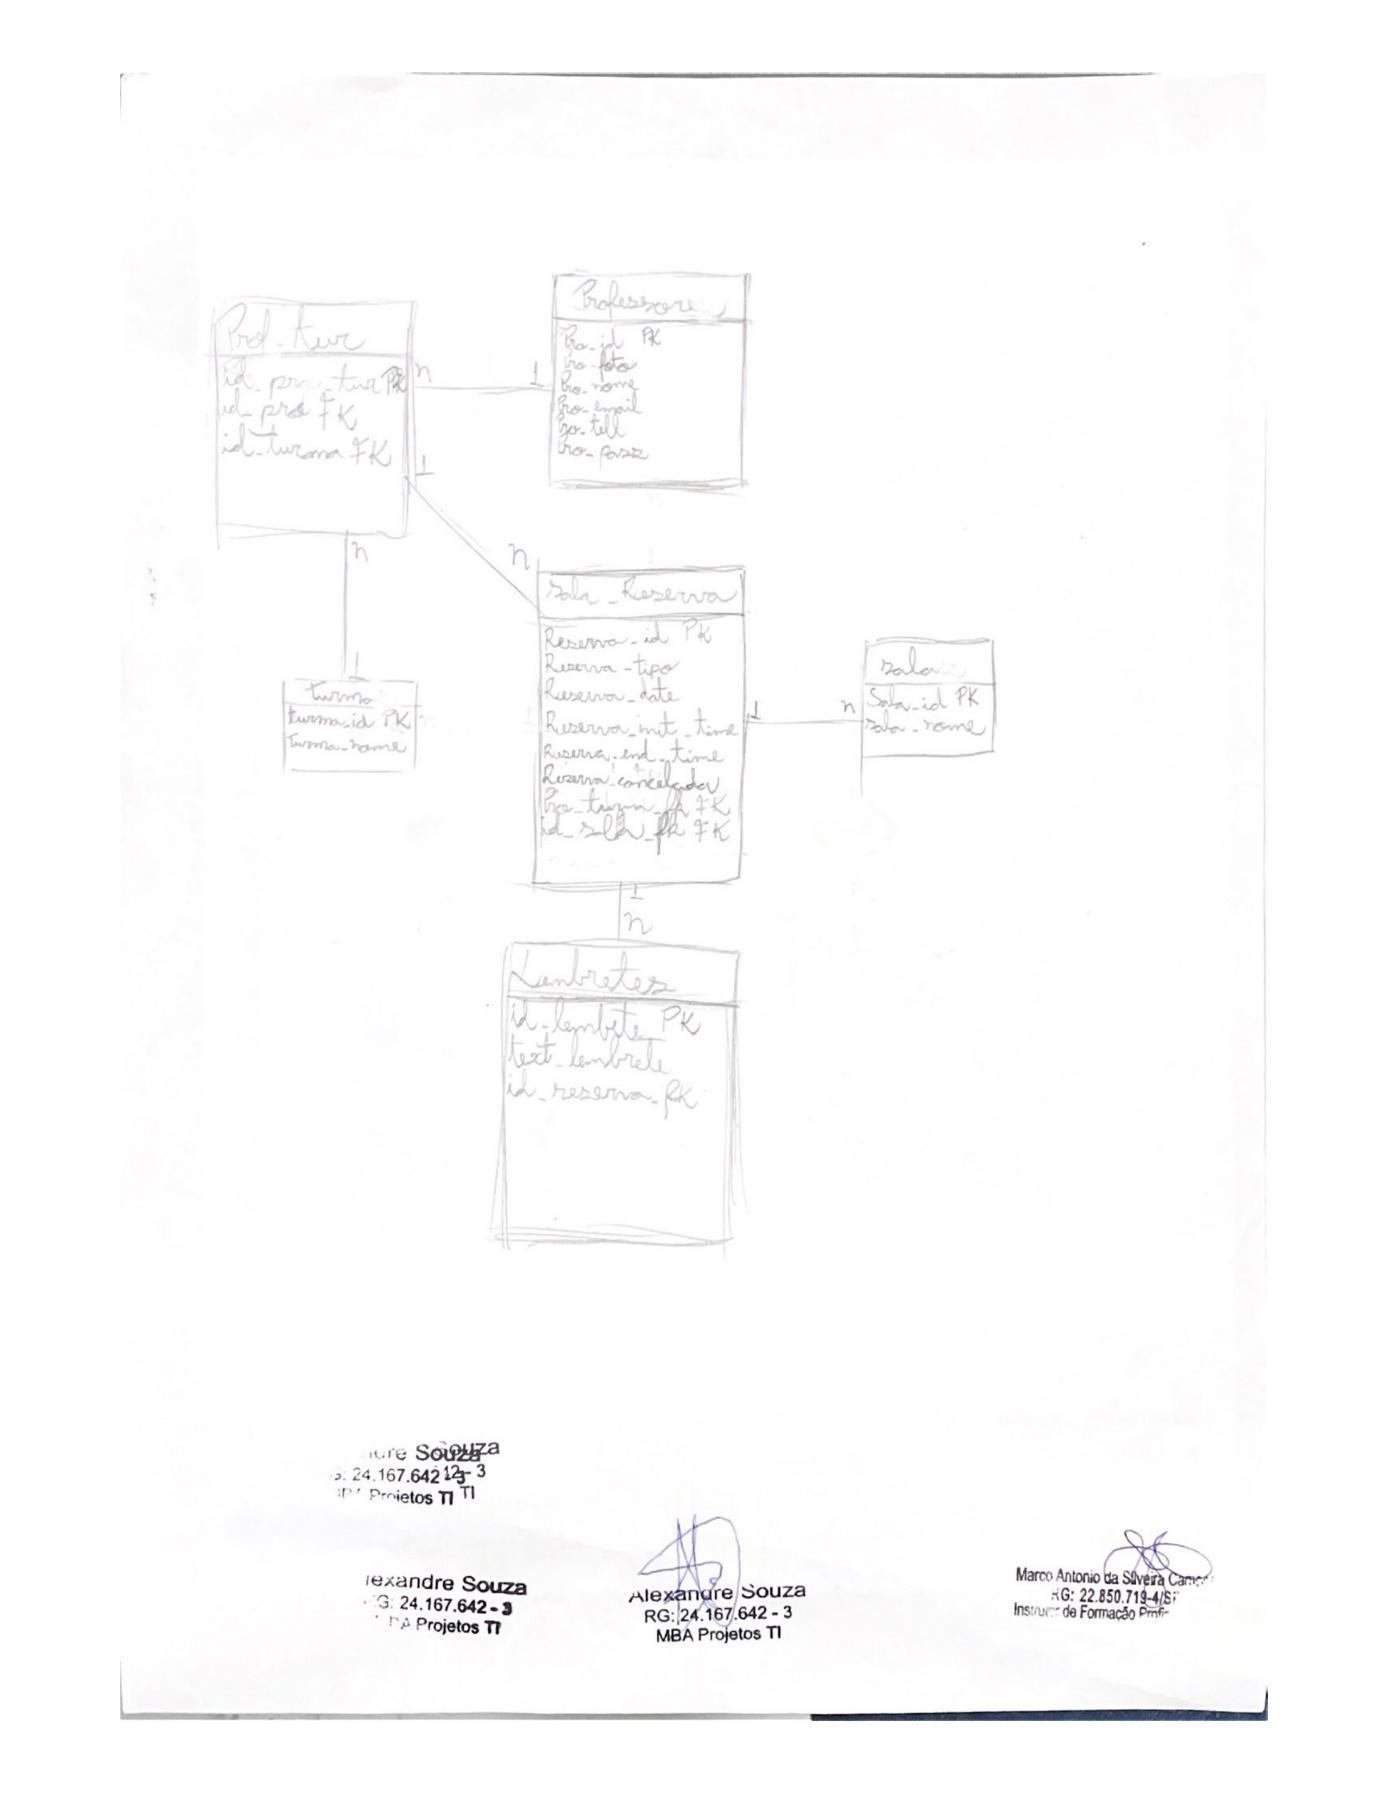 Prof_tur
id_pro_tur PK
id_pro FK
id_turma FK
n
1
1
n
n
1
Professore
Pro_id PK
Pro_foto
Pro_nome
Pro_email
Pro_tell
Pro_pass
turma
turma_id PK
turma_nome
Sala_Reserva
Reserva_id PK
Reserva_tipo
Reserva_date
Reserva_init_time
Reserva_end_time
Reserva_cancelada
Pro_turm_fk FK
id_sala_fk FK
1
n
salas
Sala_id PK
sala_nome
1
n
Lembretes
id_lembete PK
text_lembrete
id_reserva_fK
Souza
24.167.642 - 3
Projetos TI
lexandre Souza
G: 24.167.642 - 3
Projetos TI
Alexandre Souza
RG: 24.167.642 - 3
MBA Projetos TI
Marco Antonio da Silveira
RG: 22.850.719-4/S
de Formação